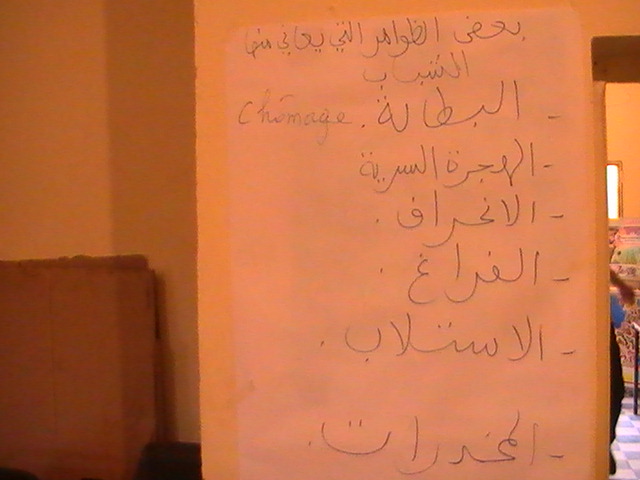 بعض الظواهر التي يعاني منها
الشباب
- البطالة. Chômage
- الهجرة السرية
- الانحراف.
- الفراغ.
- الاستلاب.
- المخدرات.